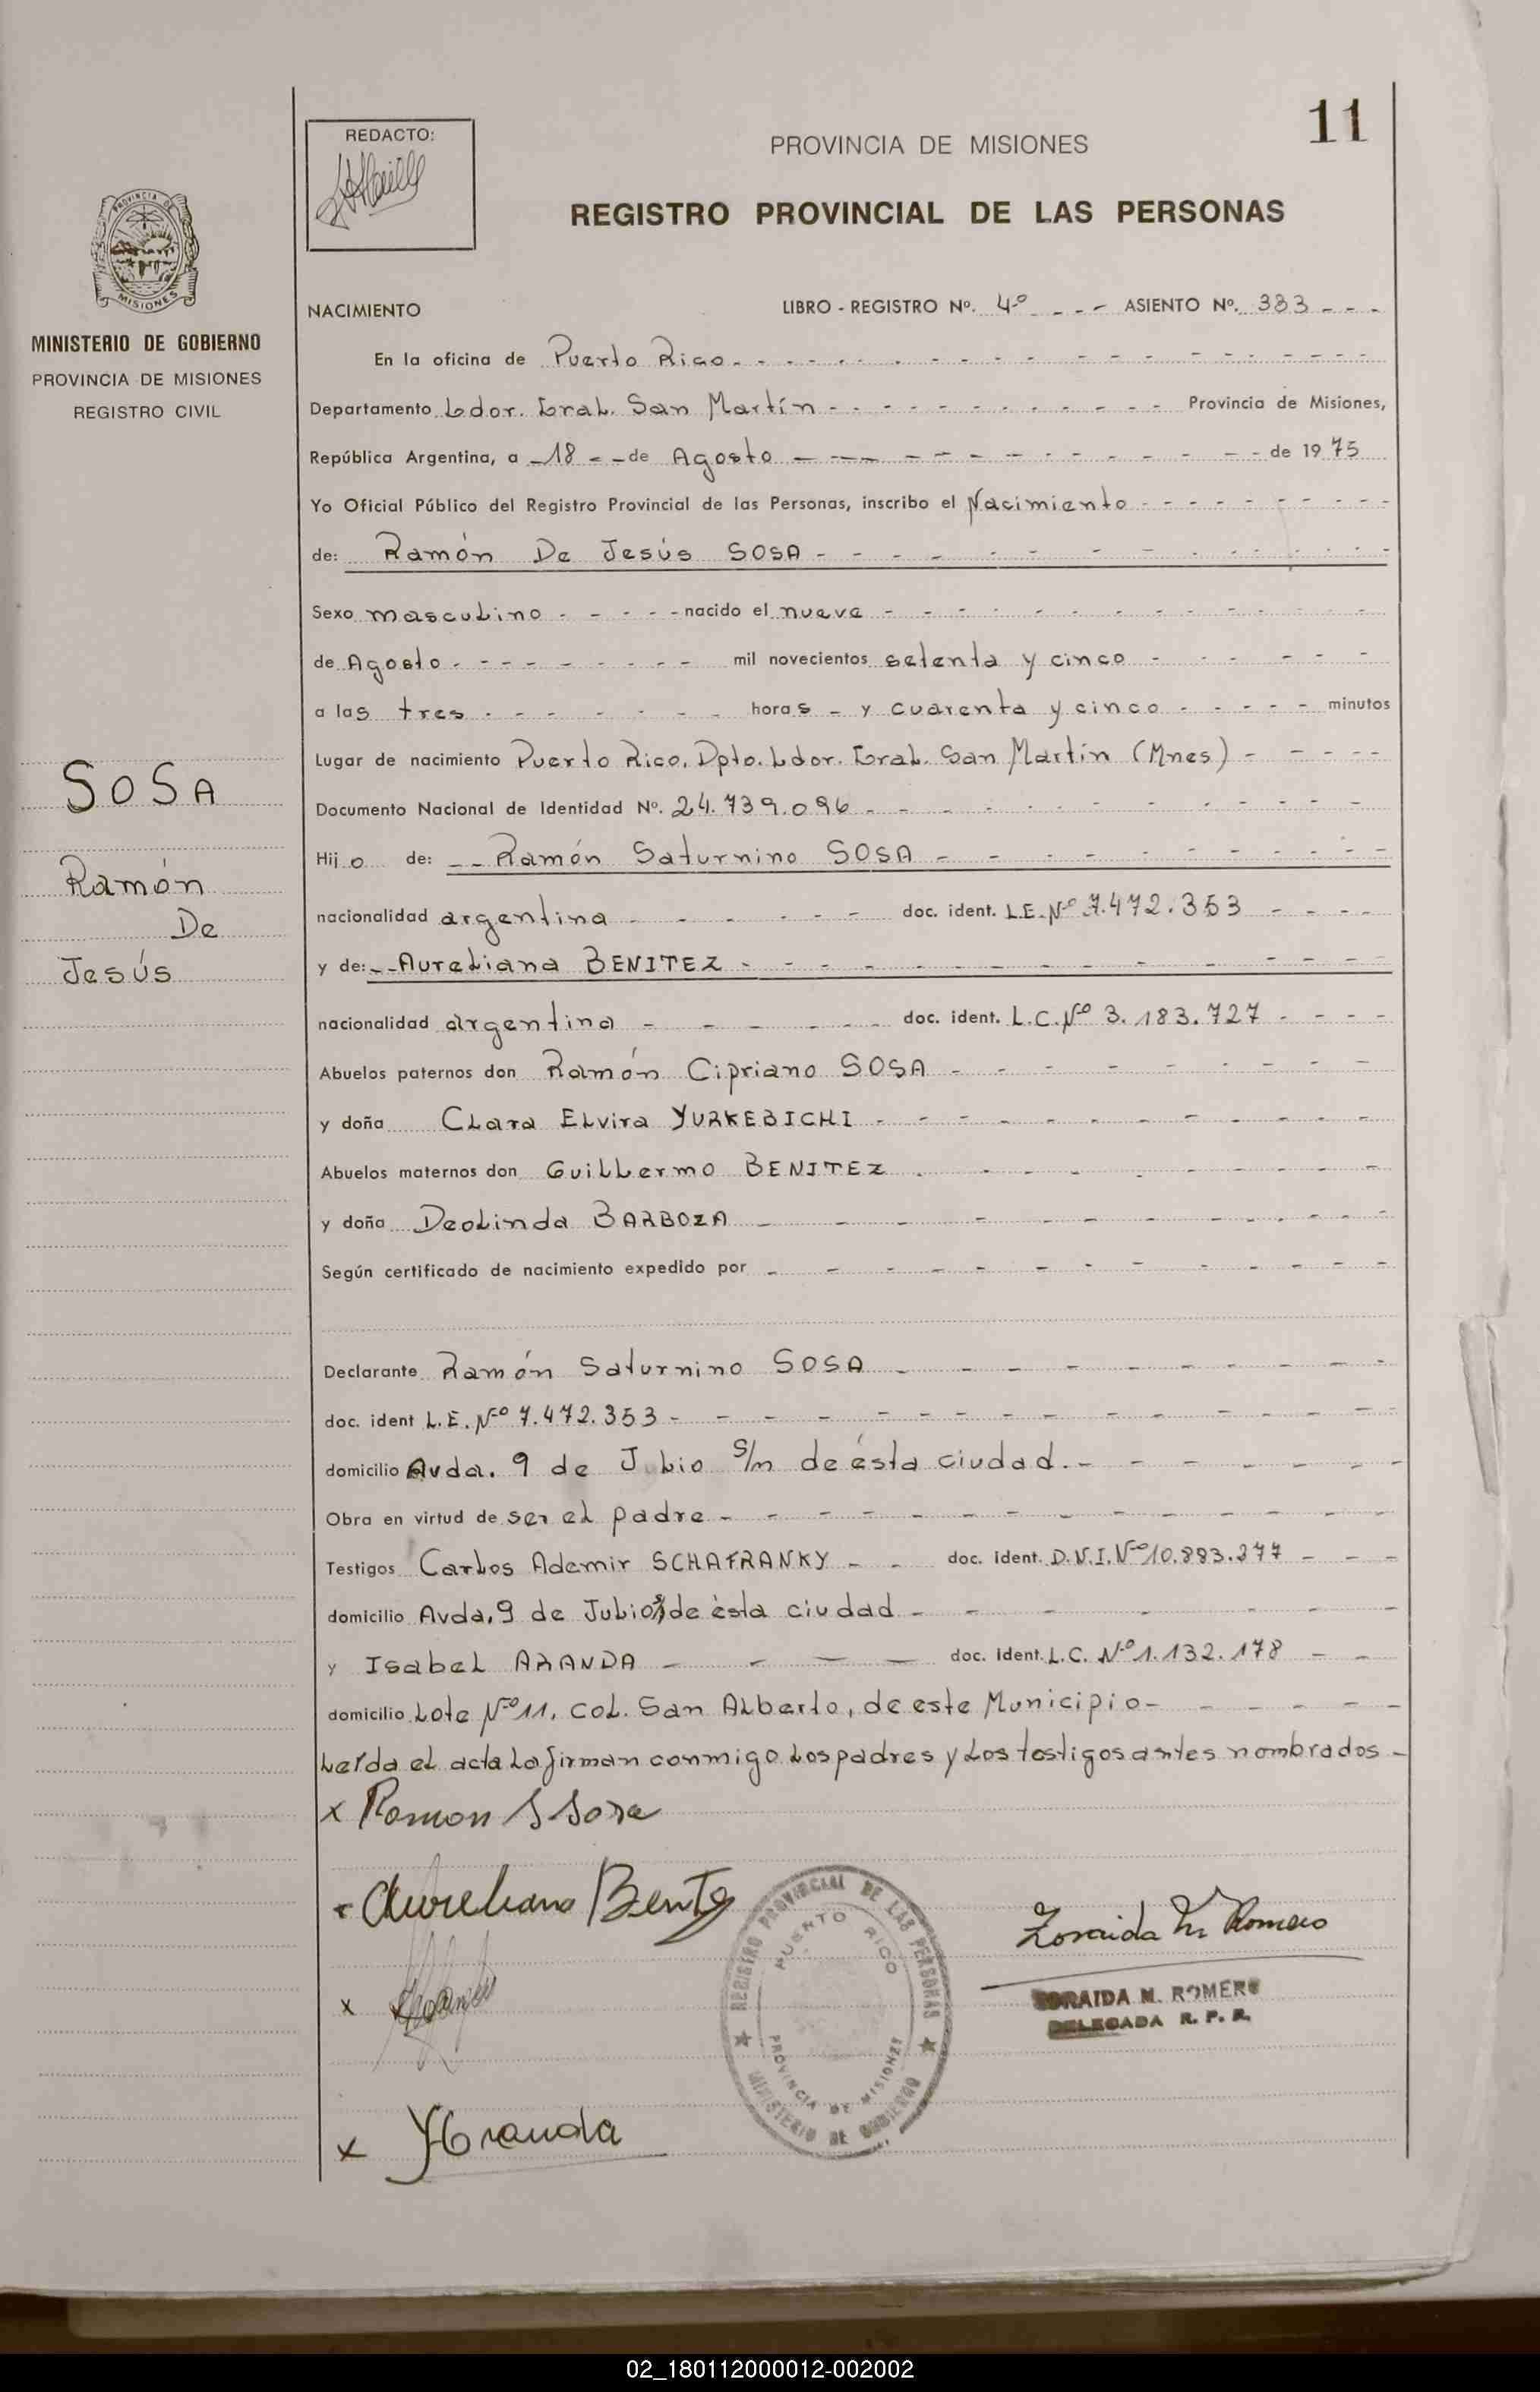 11
REDACTO:
PROVINCIA DE MISIONES
REGISTRO PROVINCIAL DE LAS PERSONAS
PROVINCIA DE
MISIONES
MINISTERIO DE GOBIERNO
PROVINCIA DE MISIONES
REGISTRO CIVIL
SOSA
Ramón
De
Jesús
NACIMIENTO LIBRO - REGISTRO Nº. 4º - - - ASIENTO Nº. 383 - - -
En la oficina de Puerto Rico - - -
Departamento Ldor. Gral. San Martín - - - Provincia de Misiones,
República Argentina, a - 18 - - de Agosto - - - de 19 75
Yo Oficial Público del Registro Provincial de las Personas, inscribo el Nacimiento - - -
de: Ramón De Jesús SOSA - - -
Sexo masculino - - - nacido el nueve - - -
de Agosto - - - mil novecientos setenta y cinco - - -
a las tres - - - horas - y cuarenta y cinco - - - minutos
Lugar de nacimiento Puerto Rico, Dpto. Ldor. Gral. San Martín (Mnes) - - -
Documento Nacional de Identidad Nº. 24.739.096 - - -
Hijo de: - - Ramón Saturnino SOSA - - -
nacionalidad argentina - - - doc. ident. L.E. Nº 7.472.353 - - -
y de: - - Aureliana BENITEZ - - -
nacionalidad argentina - - - doc. ident. L.C. Nº 3.183.727 - - -
Abuelos paternos don Ramón Cipriano SOSA - - -
y doña Clara Elvira YURKEBICHI - - -
Abuelos maternos don Guillermo BENITEZ - - -
y doña Deolinda BARBOZA - - -
Según certificado de nacimiento expedido por - - -
Declarante Ramón Saturnino SOSA - - -
doc. ident L.E. Nº 7.472.353 - - -
domicilio Avda. 9 de Julio s/n de ésta ciudad. - - -
Obra en virtud de ser el padre - - -
Testigos Carlos Ademir SCHAFRANKY - - doc. ident. D.N.I. Nº 10.883.277 - - -
domicilio Avda, 9 de Julio s/n de ésta ciudad - - -
y Isabel ARANDA - - - doc. ident. L.C. Nº 1.132.178 - -
domicilio Lote Nº 11, Col. San Alberto, de este Municipio - - -
Leída el acta la firman conmigo los padres y los testigos antes nombrados -
x Ramon S Sosa
x Aureliana Benitez
x
x Y Aranda
REGISTRO PROVINCIAL DE LAS PERSONAS
PUERTO RICO
PROVINCIA DE MISIONES
MINISTERIO DE GOBIERNO
Zoraida M. Romero
ZORAIDA M. ROMERO
DELEGADA R. P. P.
02_180112000012-002002